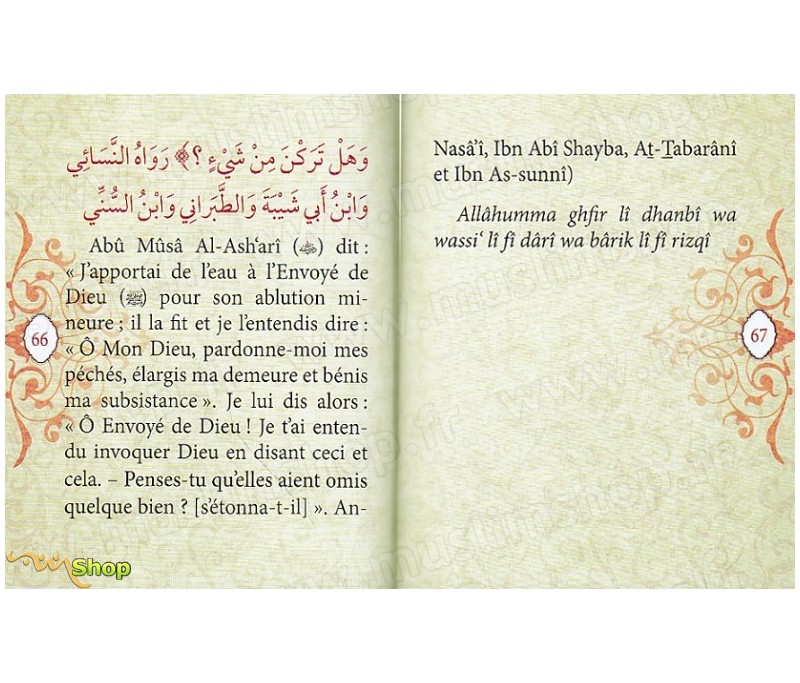 وَهَلْ تَرَكْنَ مِنْ شَيْءٍ ؟﴾ رَوَاهُ النَّسَائِي
وَابْنُ أَبِي شَيْبَةَ وَالطَّبَرَانِي وَابْنُ السُّنِّي
Abû Mûsâ Al-Ash‘arî (ﷺ) dit :
« J’apportai de l’eau à l’Envoyé de
Dieu (ﷺ) pour son ablution mi-
neure ; il la fit et je l’entendis dire :
« Ô Mon Dieu, pardonne-moi mes
péchés, élargis ma demeure et bénis
ma subsistance ». Je lui dis alors :
« Ô Envoyé de Dieu ! Je t’ai enten-
du invoquer Dieu en disant ceci et
cela. – Penses-tu qu’elles aient omis
quelque bien ? [s’étonna-t-il] ». An-
66
Nasâ’î, Ibn Abî Shayba, At-Tabarânî
et Ibn As-sunnî)
Allâhumma ghfir lî dhanbî wa
wassi‘ lî fî dârî wa bârik lî fî rizqî
67
Shop